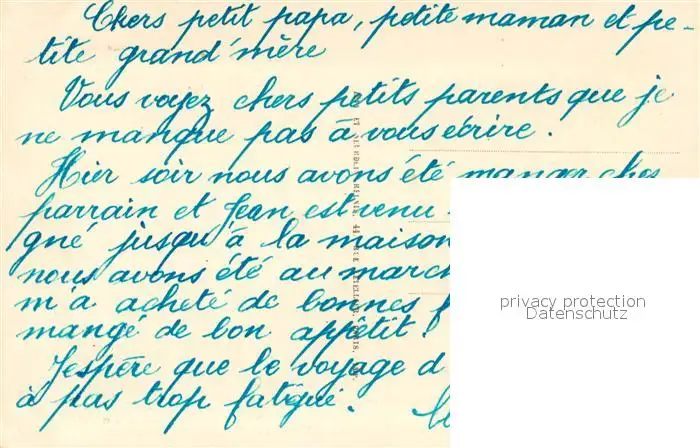 Chers petit papa, petite maman et pe-
tite grand'mère
Vous voyez chers petits parents que je
ne manque pas à vous écrire.
Hier soir nous avons été manger ches
parrain et Jean est venu
gné jusqu'à la maison
nous avons été au march
m'a acheté de bonnes
mangé de bon appétit!
J'espère que le voyage d
à pas trop fatigué.
privacy protection
Datenschutz